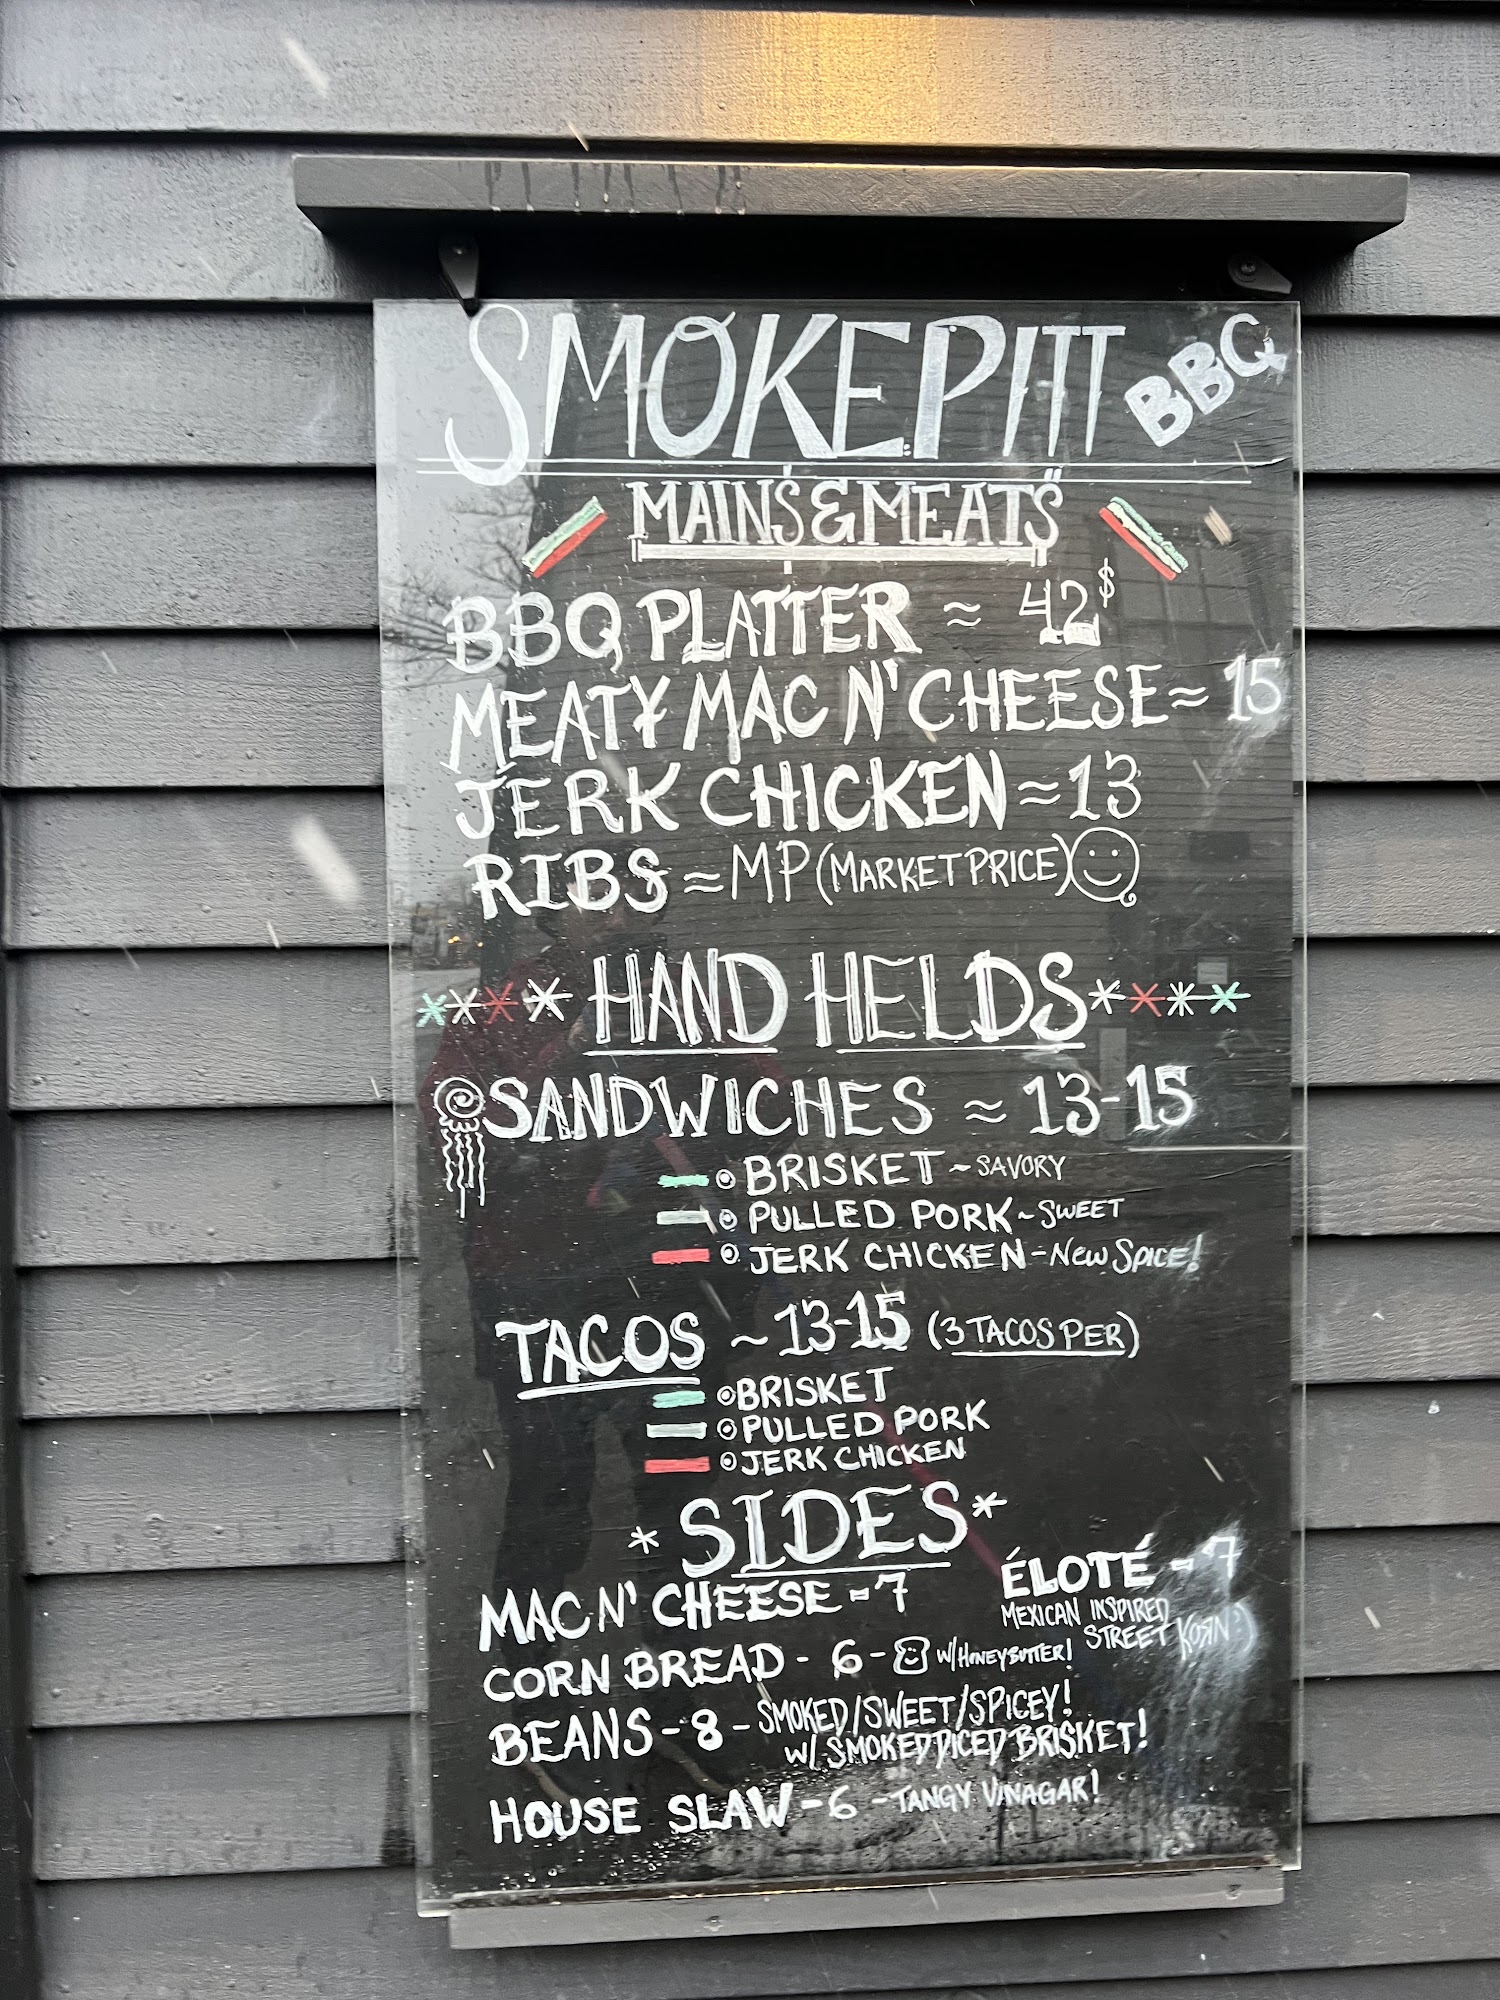 SMOKEPITT BBQ
MAINS & MEATS
BBQ PLATTER ≈ 42$
MEATY MAC N' CHEESE ≈ 15
JERK CHICKEN ≈ 13
RIBS ≈ MP (MARKET PRICE)
HAND HELDS
SANDWICHES ≈ 13-15
BRISKET ~ SAVORY
PULLED PORK ~ SWEET
JERK CHICKEN - NEW SPICE!
TACOS ~ 13-15 (3 TACOS PER)
BRISKET
PULLED PORK
JERK CHICKEN
* SIDES *
MAC N' CHEESE - 7
ÉLOTÉ - 7
MEXICAN INSPIRED
STREET KORN :)
CORN BREAD - 6 - W/ HONEY BUTTER!
BEANS - 8 - SMOKED/SWEET/SPICEY!
W/ SMOKED DICED BRISKET!
HOUSE SLAW - 6 - TANGY VINAGAR!